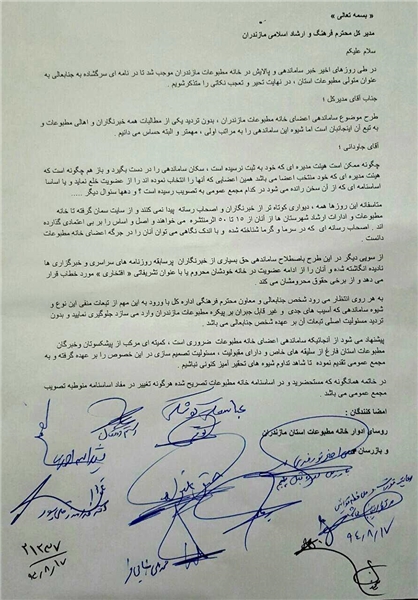 « بسمه تعالی »
مدیر کل محترم فرهنگ و ارشاد اسلامی مازندران
سلام علیکم
در طی روزهای اخیر خبر ساماندهی و پالایش در خانه مطبوعات مازندران موجب شد تا در نامه ای سرگشاده به جنابعالی به
عنوان متولی مطبوعات استان ، در نهایت تحیر و تعجب نکاتی را متذکرشویم .
جناب آقای مدیرکل ؛
طرح موضوع ساماندهی اعضای خانه مطبوعات مازندران ، بدون تردید یکی از مطالبات همه خبرنگاران و اهالی مطبوعات و
به تبع آن اینجانبان است اما شیوه این ساماندهی را به مراتب اولی ، مهمتر و البته حساس می دانیم .
آقای جاودانی ؛
چگونه ممکن است هیئت مدیره ای که خود به ثبت نرسیده است ، سکان ساماندهی را در دست بگیرد و باز هم چگونه است که
هیئت مدیره ای که خود منتخب اعضا می باشد همین اعضایی که آنها را انتخاب نموده اند را از عضویت خلع نماید و یا اساسا
اساسنامه ای که از آن سخن رانده می شود در کدام مجمع عمومی به تصویب رسیده است ؟ و دهها سئوال دیگر ....
متاسفانه این روزها همه ، دیواری کوتاه تر از خبرنگاران و اصحاب رسانه پیدا نمی کنند و از سایت سمان گرفته تا خانه
مطبوعات و ادارات ارشاد شهرستان ها از آنان از ۱۵ تا ۵۰ اثرمنتشره می خواهند و اصل و اساس را بر بی اعتمادی گذارده
اند . اصحاب رسانه ای که در سرما و گرما شناخته شده و با اندک نگاهی می توان آنان را در جرگه اعضای خانه مطبوعات
دانست .
از سویی دیگر در این طرح باصطلاح ساماندهی حق بسیاری از خبرنگاران پرسابقه روزنامه های سراسری و خبرگزاری ها
نادیده انگاشته شده و آنان را از ادامه عضویت در خانه خودشان محروم یا با عنوان تشریفاتی « افتخاری » مورد خطاب قرار
می دهد و از برخی حقوق محرومشان می کند
به هر روی انتظار می رود شخص جنابعالی و معاون محترم فرهنگی اداره کل با ورود به این مهم از تبعات منفی این نوع و
شیوه ساماندهی که آسیب های جدی و غیر قابل جبران بر پیکره مطبوعات مازندران وارد می سازد جلوگیری نمایید و بدون
تردید مسئولیت اصلی تبعات آن بر عهده شخص جنابعالی می باشد .
پیشنهاد می شود از آنجائیکه ساماندهی اعضای خانه مطبوعات ضروری است ، کمیته ای مرکب از پیشکسوتان وخبرگان
مطبوعات استان فارغ از سلیقه های خاص و دارای مقبولیت ، مسئولیت تصمیم سازی در این خصوص را بر عهده گرفته و به
مجمع عمومی تقدیم نموده تا شاهد تداوم شیوه های تحقیر آمیز کنونی نباشیم .
در خاتمه همانگونه که مستحضرید و در اساسنامه خانه مطبوعات تصریح شده هرگونه تغییر در مفاد اساسنامه منوطبه تصویب
مجمع عمومی می باشد
امضا کنندگان :
روسای ادوار خانه مطبوعات استان مازندران
و بازرسان
۲۱۲۳۷
۹۴،۸،۱۷
۹۴،۸،۱۷